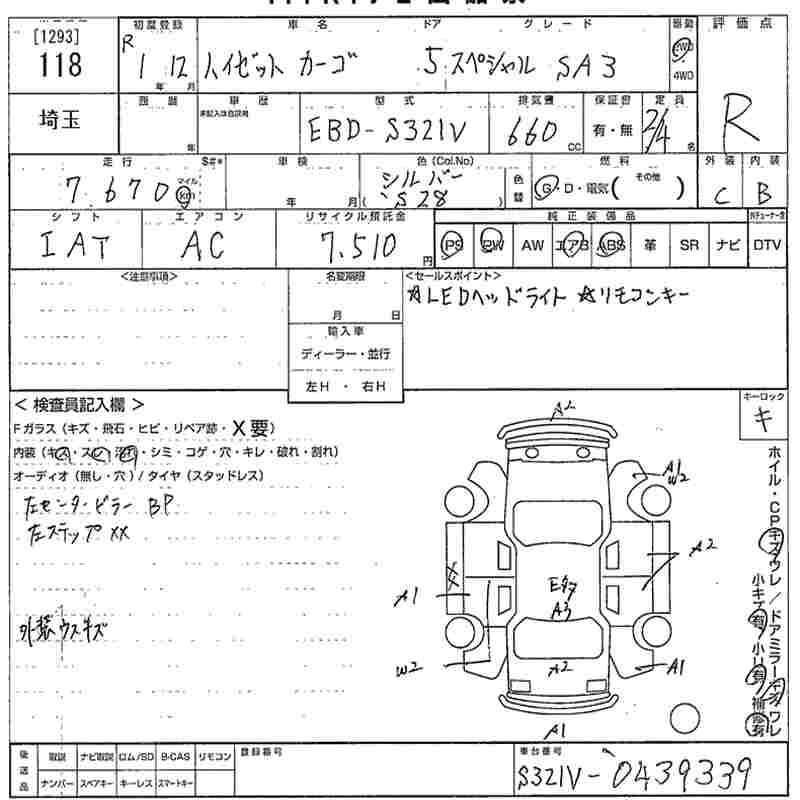 [1293]
118
初度登録
R 1 年 12 月
車名
ハイゼット カーゴ
ドア
5
グレード
スペシャル SA3
駆動
2WD
4WD
評価点
R
埼玉
年
車歴
未記入は自家用
型式
EBD-S321V
排気量
660 CC
保証書
有・無
定員
2/4 名
走行
7.670
マイル
km
$#*
車検
年 月
色(Col.No)
シルバー
( S28 )
色替
燃料
G・D・電気( その他 )
外装
C
内装
B
シフト
IAT
エアコン
AC
リサイクル預託金
7,510 円
純正装備品
PS PW AW エアB ABS 革 SR ナビ DTV
<注意事項>
名変期限
月 日
輸入車
ディーラー・並行
左H ・ 右H
<セールスポイント>
☆LEDヘッドライト ☆リモコンキー
< 検査員記入欄 >
Fガラス(キズ・飛石・ヒビ・リペア跡・X要)
内装(キズ・スレ・汚れ・シミ・コゲ・穴・キレ・破れ・割れ)
オーディオ(無し・穴)/タイヤ(スタッドレス)
左センターピラー BP
左ステップ XX
外装ウスキズ
キーロック
キ
A2
A1
W2
A2
XX
A1
Eタワ
A3
W2
A2
A1
A1
ホイル・CPキズワレ/ドアミラーキズワレ
小キズ有・小凹有・補修有
後送品
取説 ナビ取説 ロム/SD B-CAS リモコン
ナンバー スペアキー キーレス スマートキー
登録番号
車台番号
S321V-0439339